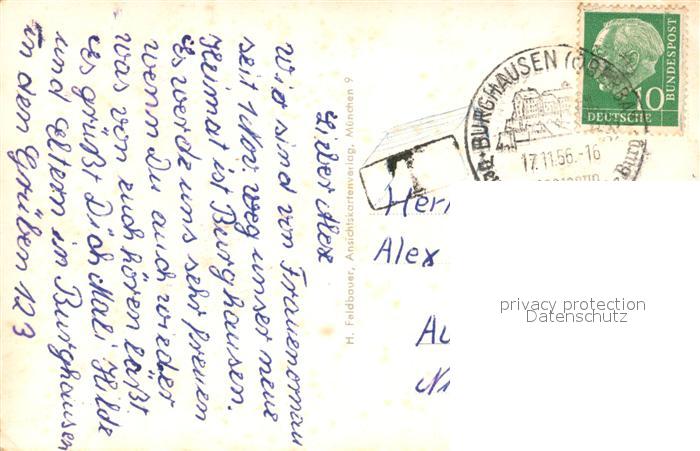 Lieber Alex
Wir sind von Frauenornau
seit 1. Nov. weg unser neue
Heimat ist Burghausen.
Es werde uns sehr freuen
wenn Du auch wieder
was von euch hören läßt
Es grüßt Dich Mali Hilde
und Eltern in Burghausen
in den Grüben 123
H. Feldbauer, Ansichtskartenverlag, München 9
BURGHAUSEN (OBERBAY
17.11.56.-16
Burg
T
10
DEUTSCHE
BUNDESPOST
Herr
Alex
privacy protection
Datenschutz